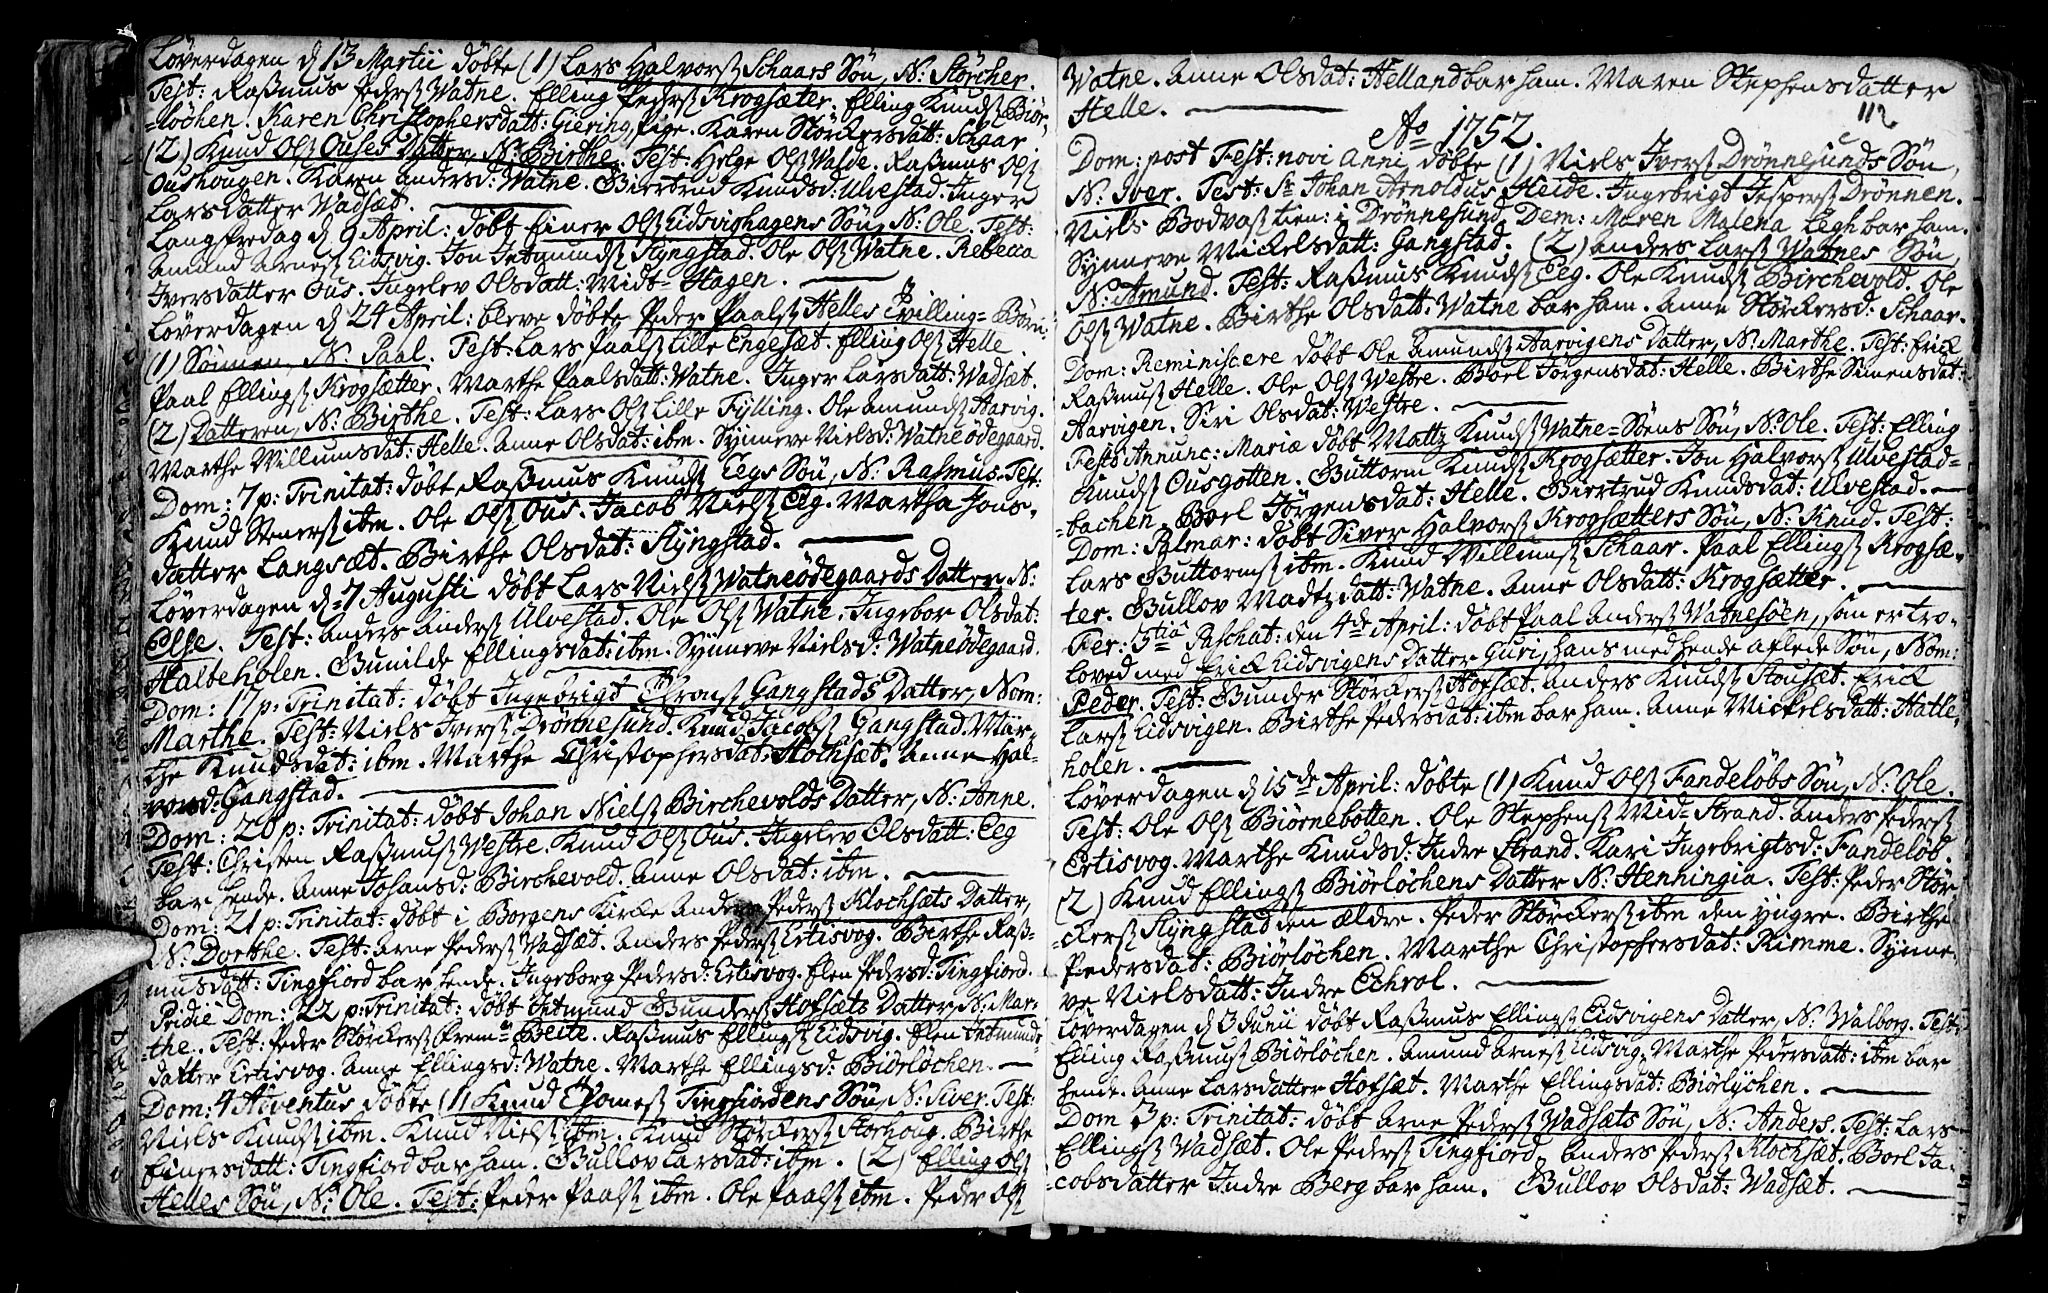 Löverdagen d 13 Martii döbte (1) Lars Halvorsß Schaars Sön, N: Störcher.
Test: Raßmus Pedersß Watne. Elling Pedersß Krogsæter. Elling Knudsß Biör-
=löchen. Karen Christophersdatt: Giering, Pige. Karen Störkersdatt: Schaar
(2) Knud Olsß Ouses Datter, N: Birthe. Test: Helge Olsß Walde. Raßmus Olsß
Oushougen. Karen Andersd: Watne. Giertrud Knudsd: Ulvestad. Inger
Larsdatter Wadsæt.
Langfredag d 9 April: döbt Einer Olsß Eidsvighagens Sön, N: Ole. Test:
Amund Arnesß Eidsvig. Jon Jetmundsß Slyngstad. Ole Olsß Watne. Rebecca
Iversdatter Ous. Ingelev Olsdatt: Midt=Hagen.
Löverdagen d 24 April: bleve döbte Peder Paalsß Helles Tvilling=Börn:
(1) Sönnen, N: Paal. Test: Lars Paalsß Lille Engesæt. Elling Olsß Helle.
Paal Ellingsß Krogsætter. Marthe Paalsdatt: Watne. Inger Larsdatt: Wadsæt.
(2) Datteren, N: Birthe. Test: Lars Olsß Lille Fylling. Ole Amundsß Aarvig.
Marthe Willumsdat: Helle. Anne Olsdat: ibm. Synneve Nielsd: Watneödegaard.
Dom: 7 p: Trinitat: döbt Raßmus Knudsß Eegs Sön, N: Rasmus. Test:
Knud Stenersß ibm. Ole Olsß Ous. Jacob Nielsß Eeg. Martha Jons-
datter Langsæt. Birthe Olsdat: Slyngstad.
Löverdagen d 7 Augusti döbt Lars Nielsß Watneödegaards Datter N:
Else. Test: Anders Andersß Ulvestad. Ole Olsß Watne. Ingebor Olsdat:
Hatleholen. Gunilde Ellingsdat: ibm. Synneve Nielsd: Watneödegaard.
Dom: 17 p: Trinitat: döbt Ingebrigt Thronsß Gangstads Datter, Nom:
Marthe. Test: Niels Iversß Drönnesund. Knud Jacobsß Gangstad. Mar-
the Knudsdat: ibm. Marthe Christophersdat: Klochsæt. Anne Hal-
vorsd: Gangstad.
Dom: 20 p: Trinitat: döbt Johan Nielsß Birchevolds Datter, N: Anne.
Test: Christen Raßmusß Westre. Knud Olsß Ous. Ingelev Olsdatt: Eeg
bar hende. Anne Johansd: Birchevold. Anne Olsdat: ibm.
Dom: 21 p: Trinitat: döbt i Borgens Kirke Anders Pedersß Klochsæts Datter,
N: Dorthe. Test: Arne Pedersß Wadsæt. Anders Pedersß Ertisvog. Birthe Raß-
musdatt: Tingfiord bar hende. Ingeborg Pedersd: Ertisvog. Elen Pedersd: Tingfiord.
Pridie Dom: 22 p: Trinitat: döbt Jetmund Gundersß Hofsæts Datter, N: Mar-
=the. Test: Peder Störkersß Frem= Beite. Raßmus Ellingsß Eidsvig. Elen Jetmunds-
datter Ertisvog. Anne Ellingsd: Watne. Marthe Ellingsd: Biörlöchen.
Dom: 4 Adventus döbte (1) Knud Thomesß Tingfiordens Sön, N: Siver. Test:
Niels Knudsß ibm. Knud Nielsß ibm. Knud Störkersß Storhoug. Birthe
Einersdatt: Tingfiord bar ham. Gullov Larsdat: ibm. (2) Elling Olsß
Helles Sön, N: Ole. Test: Peder Paalsß ibm. Ole Paalsß ibm. Peder Olsß
Watne. Anne Olsdat: Helland bar ham. Maren Stephensdatter
Helle.
112
Ao 1752.
Dom: post Fest: novi Anni döbte (1) Niels Iversß Drönnesunds Sön,
N: Iver. Test: Sr Johan Arnoldus Heide. Ingebrigt Jespersß Drönnen.
Niels Bodvasßtien: i Drönnesund. Dem: Maren Malena Leghbar ham.
Synneve Mickelsdatt: Gangstad. (2) Anders Larsß Watnes Sön,
N: Amund. Test: Raßmus Knudsß Eeg. Ole Knudsß Birchevold. Ole
Olsß Watne. Birthe Olsdatt: Watne bar ham. Anne Störkersd: Schaar.
Dom: Reminiscere döbt Ole Amundsß Aarvigens Datter, N: Marthe. Test: Erick
Raßmusß Helle. Ole Olsß Westre. Boel Jörgensdat: Helle. Birthe Simensdat:
Aarvigen. Siri Olsdat: Westre.
Festo Annunc: Mariæ döbt Mattz Knudsß Watne=Söens Sön, N: Ole. Test: Elling
Knudsß Ousgotten. Guttorm Knudsß Krogsætter. Jon Halvorsß Ulvestad=
=bachen. Boel Jörgensdat: Helle. Giertrud Knudsdat: Ulvestad.
Dom: Palmar: döbt Siver Halvorsß Krogsætters Sön, N: Knud. Test:
Lars Guttormsß ibm. Knud Willumsß Schaar. Paal Ellingsß Krogsæ-
ter. Gullov Madtzdatt: Watne. Anne Olsdatt: Krogsætter.
Fer: 3tia Paschat: den 4de April: döbt Paal Anders Watnesöen, som er tro-
loved med Erick Eidsvigens Datter Guri, hans med hende aflede Sön, Nom:
Peder. Test: Gunder Störkersß Hofsæt. Anders Knudsß Stousæt. Erick
Larsß Eidsvigen. Birthe Pedersdat: ibm bar ham. Anne Mickelsdatt: Hatle-
holen.
Löverdagen d 15de April: döbte (1) Knud Olsß Fandelöbs Sön, N: Ole.
Test: Ole Olsß Biörnebotten. Ole Stephensß Mid=Strand. Anders Pedersß
Ertisvog. Marthe Knudsd: Indre Strand. Kari Ingebrigtsd: Fandelöb.
(2) Knud Ellingsß Biörlöchens Datter N: Henningia. Test: Peder Stör-
=ckersß Slyngstad den Ældre. Peder Störckersß ibm den yngre. Birthe
Pedersdat: Biörlöchen. Marthe Christophersdat: Rimme. Synne-
ve Nielsdatt: Indre Echrol.
Löverdagen d 3 Junii döbt Raßmus Ellingsß Eidsvigens Datter, N: Walborg. Test:
Elling Raßmusß Biörlöchen. Amund Arnesß Eidsvig. Marthe Pedersdatt: ibm bar
hende. Anne Larsdatter Hofsæt. Marthe Ellingsdat: Biörlychen.
Dom 3 p: Trinitat: döbt Arne Pedersß Wadsæts Sön, N: Anders. Test: Lars
Ellingsß Wadsæt. Ole Pedersß Tingfiord. Anders Pedersß Klochsæt. Boel Ja-
=cobsdatter Indre Berg bar ham. Gullov Olsdat: Wadsæt.